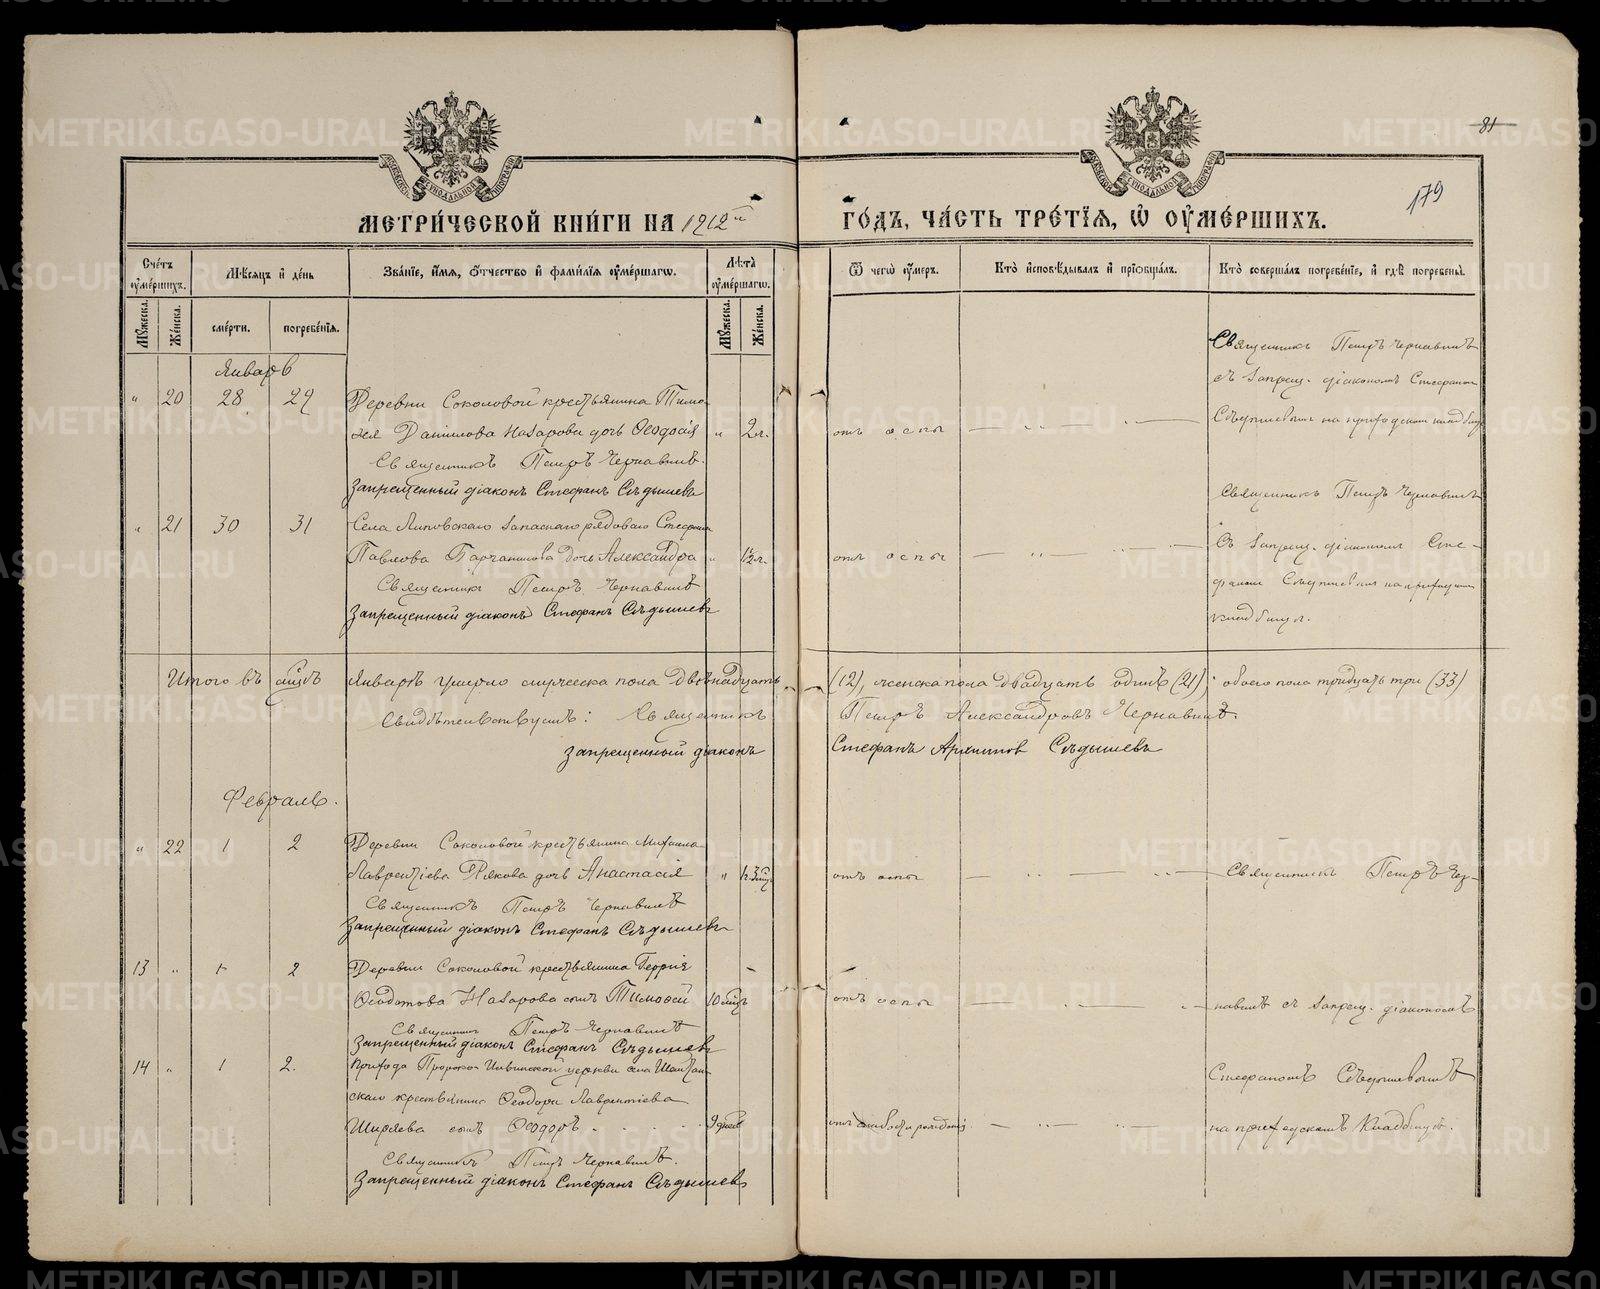 81
179
МЕТРИЧЕСКОЙ КНИГИ НА 1912й
ГОДЪ, ЧАСТЬ ТРЕТІЯ, Ѿ ОУМЕРШИХЪ.
Счетъ оумершихъ.
Мѣсяцъ и день
Званіе, имя, отчество и фамилія оумершагѡ.
Лѣта оумершагѡ.
Ѿ чегѡ оумеръ.
Кто исповѣдывалъ и пріобщалъ.
Кто совершалъ погребеніе, и гдѣ погребены.
Мужеска.
Женска.
смерти.
погребенія.
Мужеска.
Женска.
Январь
" 20 28 29 Деревни Соколовой крестьянина Тимо-
ѳея Данилова Назарова дочь Ѳеодосія " 2 г. отъ оспы
Священникъ Петръ Чернавинъ.
Запрещенный діаконъ Стефанъ Сѣдышевъ
Священникъ Петръ Чернавинъ
съ запрещ. діакономъ Стефаномъ
Сѣдышевымъ на приходскомъ кладбищѣ
" 21 30 31 Села Липовскаго запаснаго рядоваго Стефана
Павлова дочь Александра " отъ оспы
Священникъ Петръ Чернавинъ
Запрещенный діаконъ Стефанъ Сѣдышевъ
Священникъ Петръ Чернавинъ
съ запрещ. діакономъ Сте-
фаномъ Сѣдышевымъ на приходскомъ
кладбищѣ.
Итого въ мцѣ Январѣ умерло мужеска пола двѣнадцать (12), женска пола двадцать одинъ (21); обоего пола тридцать три (33)
Свидѣтельствуютъ: Священникъ Петръ Александровъ Чернавинъ.
Запрещенный діаконъ Стефанъ Архиповъ Сѣдышевъ
Февраль.
" 22 1 2 Деревни Соколовой крестьянина Михаила
Лаврентіева дочь Анастасія " отъ оспы Священникъ Петръ Чер-
Священникъ Петръ Чернавинъ
Запрещенный діаконъ Стефанъ Сѣдышевъ
13 " 1 2 Деревни Соколовой крестьянина
Ѳеодотова Назарова сынъ Тимоѳей 10 мцъ отъ оспы навинъ съ запрещ. діакономъ
Священникъ Петръ Чернавинъ
Запрещенный діаконъ Стефанъ Сѣдышевъ
14 " 1 2. Прихода Пророко-Ильинской церкви села Шайтан-
скаго крестьянина Ѳеодора Лаврентіева Стефаномъ Сѣдышевымъ
Ширяева сынъ Ѳеодоръ 9 дней отъ слабости рожденія на приходскомъ кладбищѣ.
Священникъ Петръ Чернавинъ.
Запрещенный діаконъ Стефанъ Сѣдышевъ
METRIKI.GASO-URAL.RU